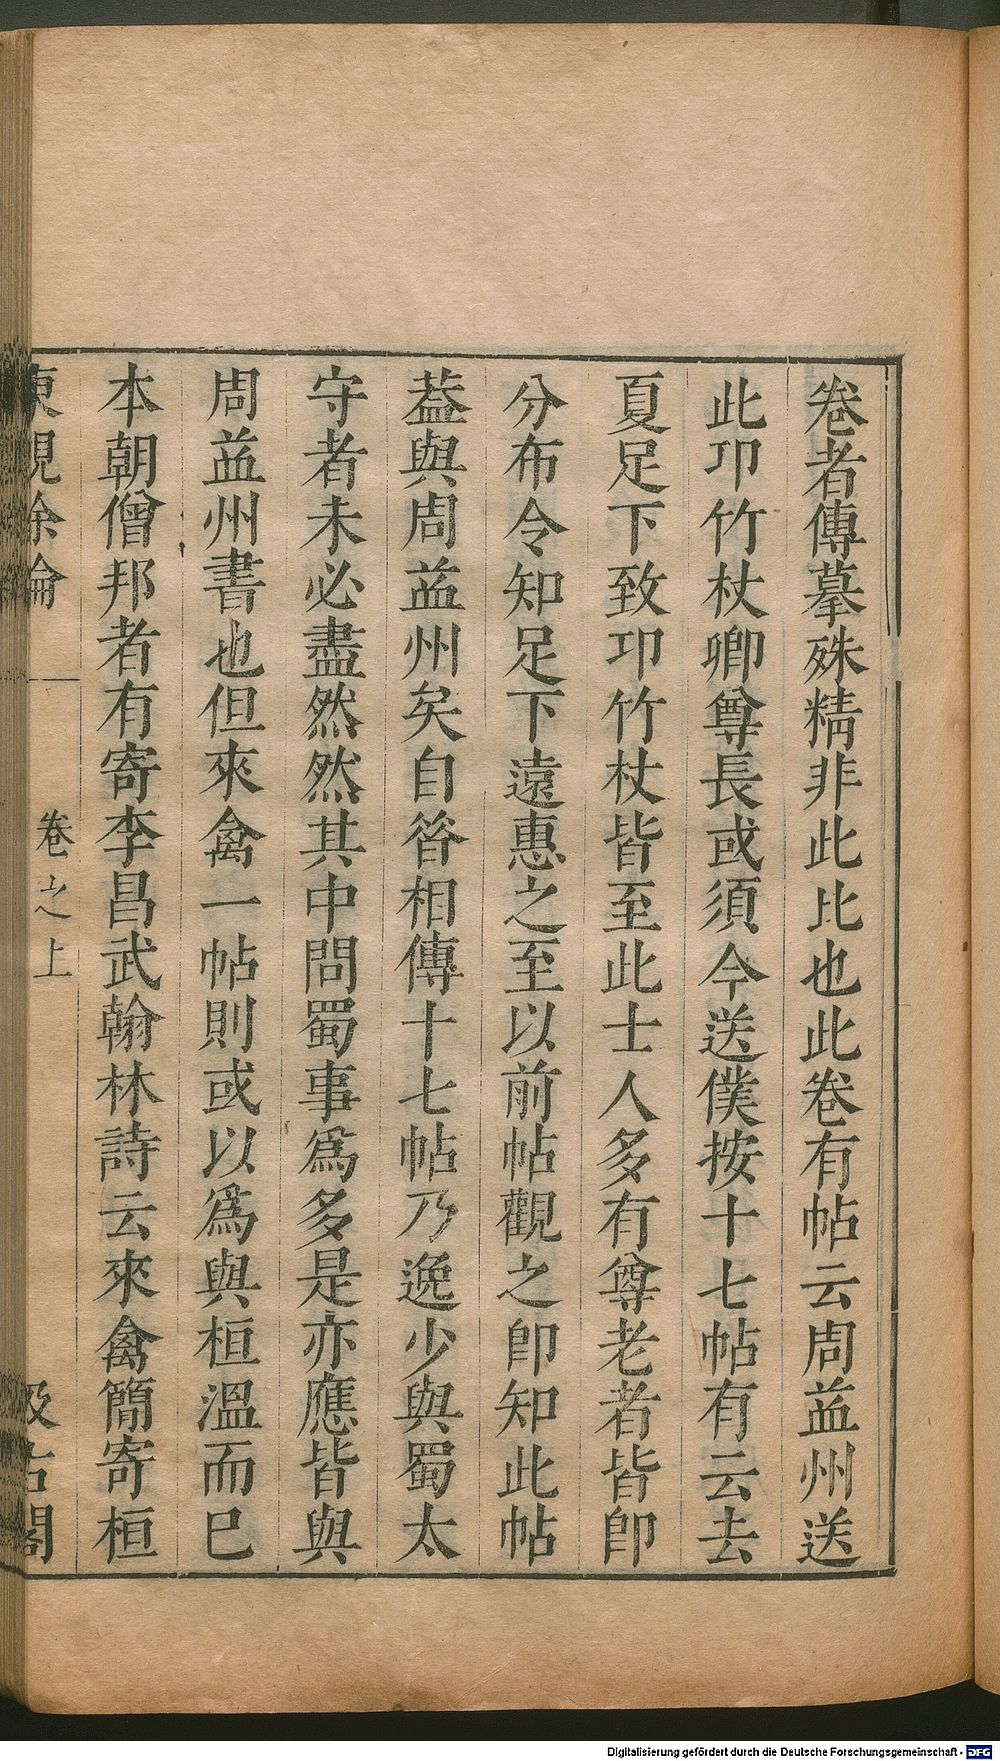 卷者傳摹殊精非此比也此卷有帖云周益州送
此卭竹杖卿尊長或須今送僕按十七帖有云去
夏足下致卭竹杖皆至此士人多有尊老者皆卽
分布令知足下遠惠之至以前帖觀之卽知此帖
葢與周益州矣自昝相傳十七帖乃逸少與蜀太
守者未必盡然然其中問蜀事爲多是亦應皆與
周益州書也但來禽一帖則或以爲與桓溫而巳
本朝僧邦者有寄李昌武翰林詩云來禽簡寄桓
東觀餘論
卷之上
汲古閣
Digitalisierung gefördert durch die Deutsche Forschungsgemeinschaft - DFG